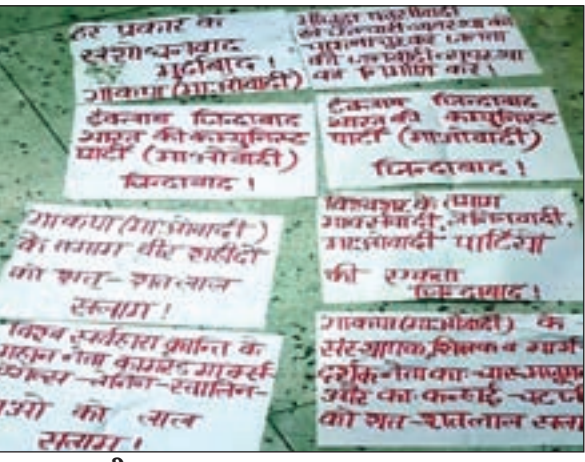 हर प्रकार के
संशोधनवाद
मुर्दाबाद !
भाकपा (माओवादी)
का निर्माण करें !
इंकलाब जिन्दाबाद
भारत की कम्युनिस्ट
पार्टी (माओवादी)
जिन्दाबाद !
इंकलाब जिन्दाबाद
भारत की कम्युनिस्ट
पार्टी (माओवादी)
जिन्दाबाद !
भाकपा (माओवादी)
के तमाम वीर शहीदों
को शत-शत लाल
सलाम !
विश्वभर के तमाम
मार्क्सवादी, लेनिनवादी,
माओवादी पार्टियों
की एकता
जिन्दाबाद !
विश्व सर्वहारा क्रान्ति के
महान नेता कामरेड मार्क्स-
एंगेल्स-लेनिन-स्तालिन-
माओ को लाल
सलाम !
भाकपा (माओवादी) के
संस्थापक, शिक्षक व मार्ग-
दर्शक नेता का. चारु मजुम
और का. कन्हाई चटर्जी
को शत-शत लाल सला